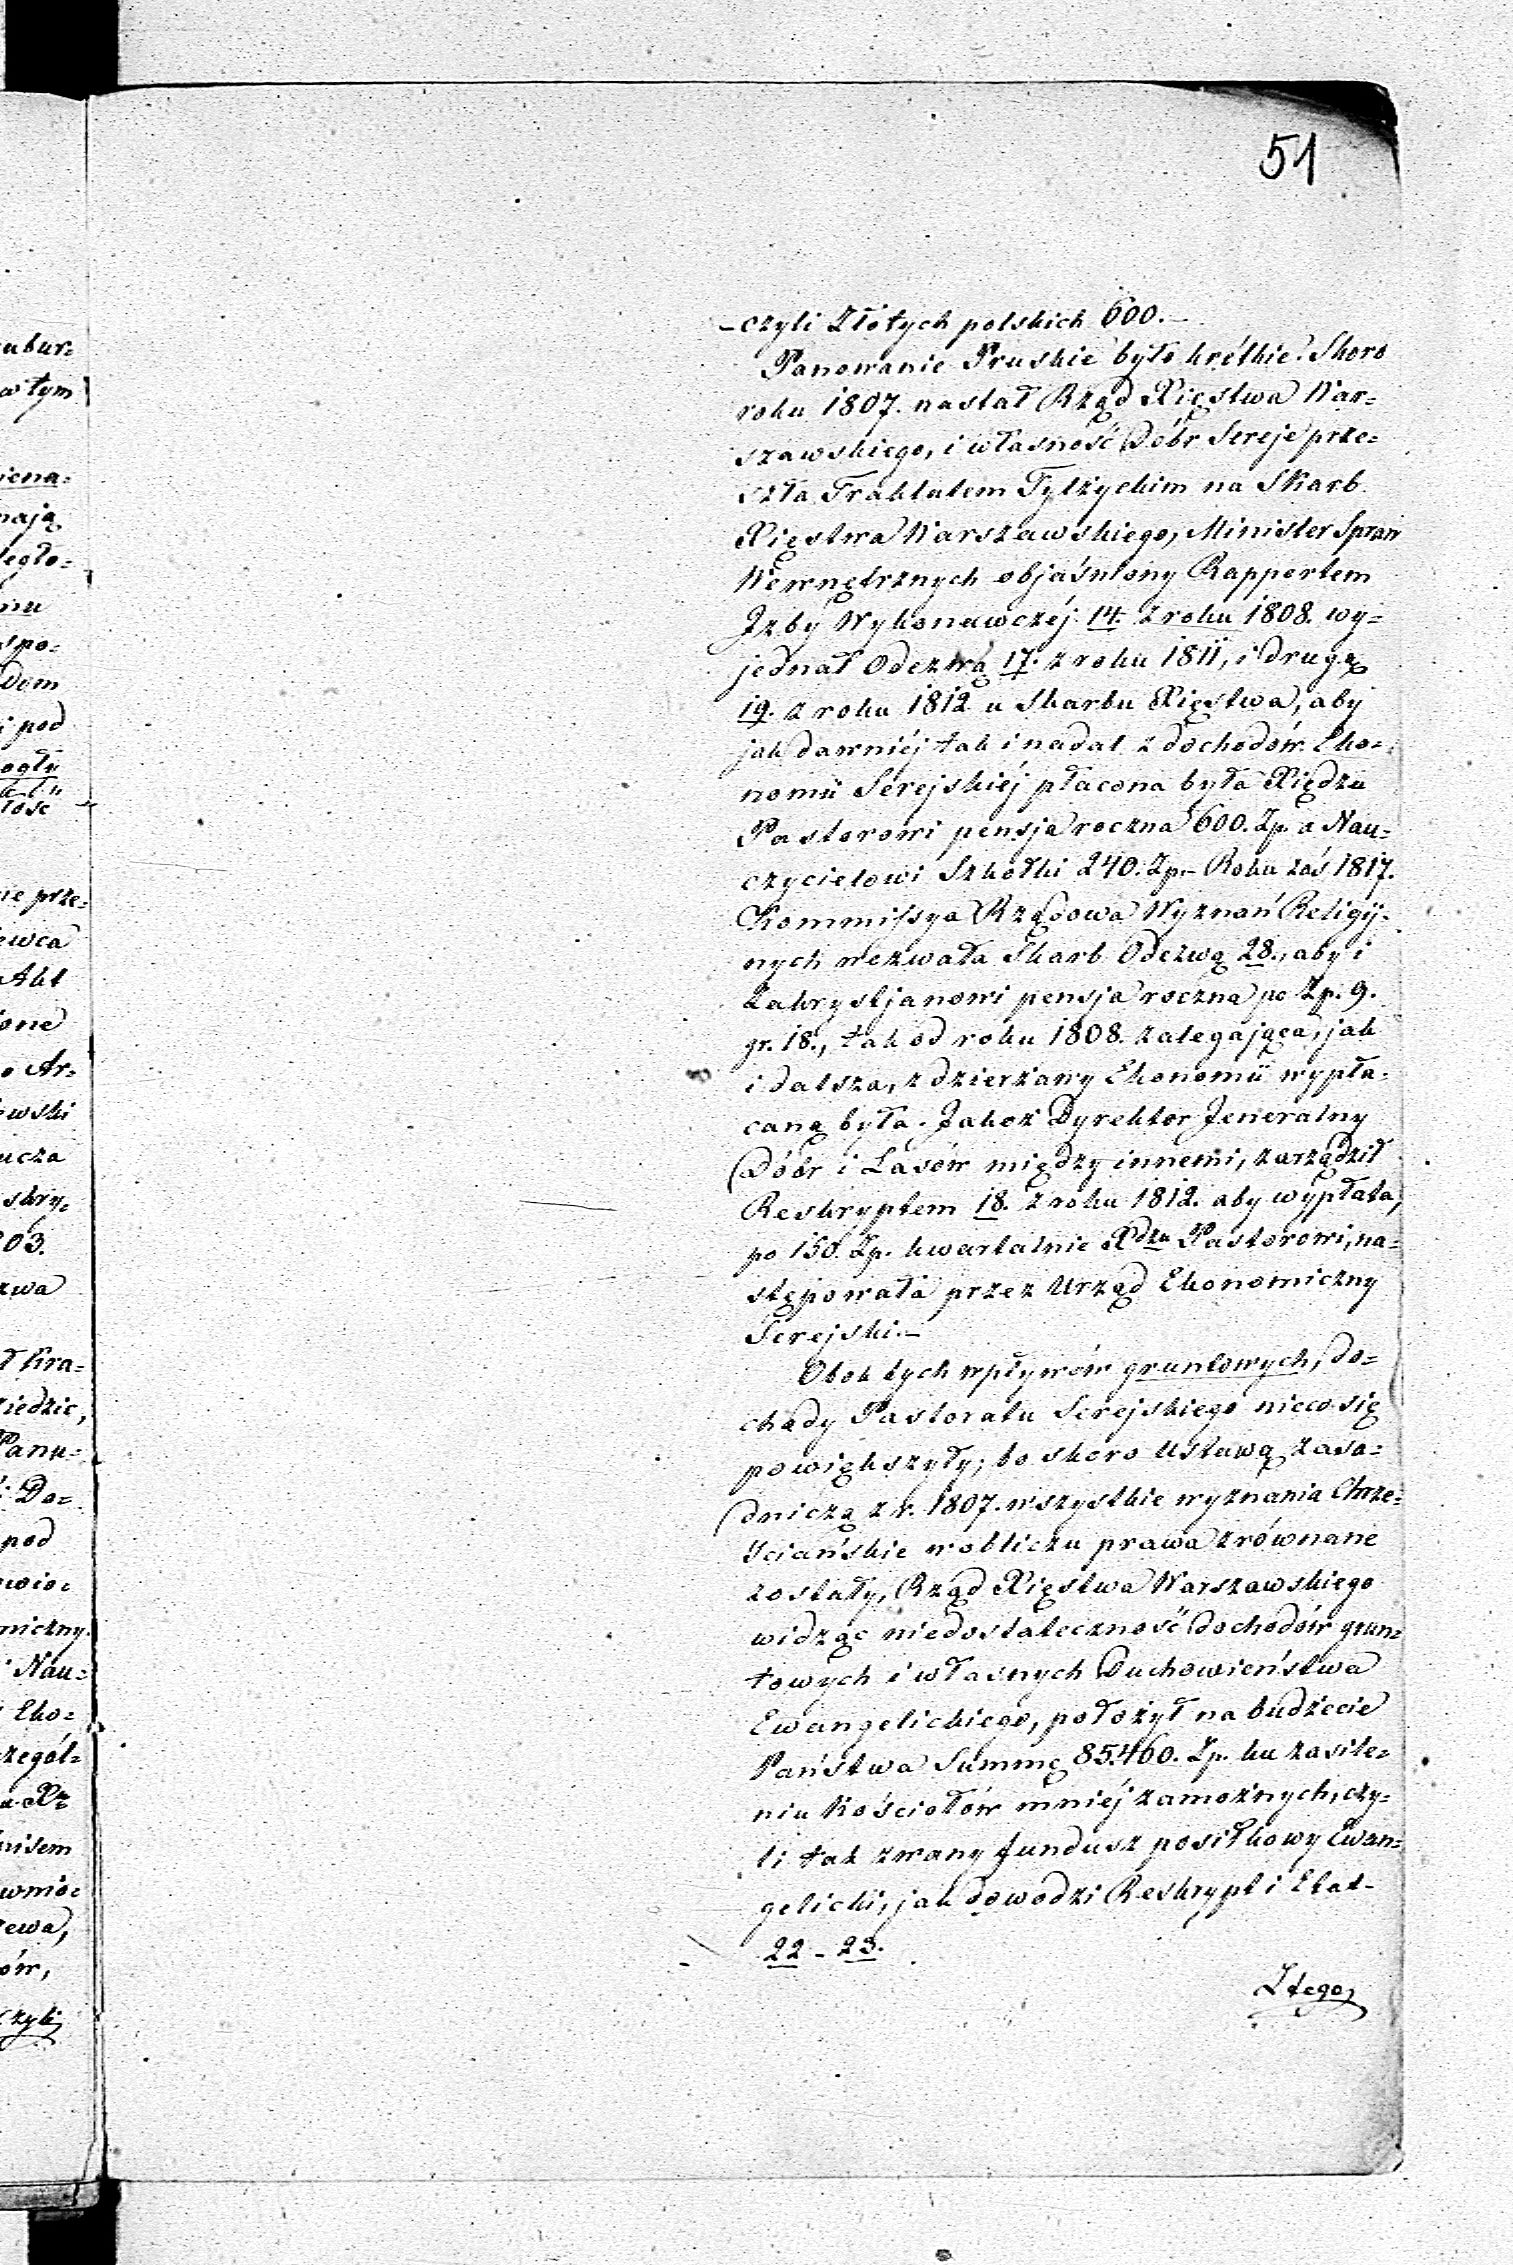 51
- czyli Złotych polskich 600.-
Panowanie Pruskie było krótkie. Skoro
roku 1807. nastał Rząd Xięstwa War=
szawskiego, i własność Dóbr Sereje prze=
szła Traktatem Tylżyckim na Skarb
Xięstwa Warszawskiego, Minister Spraw
Wewnętrznych objaśniony Rapportem
Jzby Wykonawczéj 14. z roku 1808. wy=
jednał Odezwą 17. z roku 1811, i drugą
19. z roku 1812 u Skarbu Xięstwa, aby
jak dawniéj tak i nadal z dochodów Eko=
nomii Serejskiéj płacona była Xiędzu
Pastorowi pensja roczna 600. Zp. a Nau=
czycielowi Szkołki 240. Zp.- Roku zaś 1817.
Kommissya Rządowa Wyznań Religij=
nych wezwała Skarb Odezwą 28., aby i
Zakrystjanowi pensja roczna po Zp. 9.
gr. 18., tak od roku 1808. zalegająca, jak
i dalsza, z dzierżawy Ekonomii wypła=
caną była. Jakoż Dyrektor Jeneralny
Dóbr i Lasów między innemi, zarządził
Reskryptem 18. z roku 1812. aby wypłata,
po 150. Zp. kwartalnie Xdzu Pastorowi, na=
stępowała przez Urząd Ekonomiczny
Serejski.-
Obok tych wpływów gruntowych, do=
chody Pastoratu Serejskiego nieco się
powiększyły; bo skoro Ustawą zasa=
dniczą z r. 1807. wszystkie wyznania Chrze=
ściańskie w obliczu prawa zrównane
zostały, Rząd Xięstwa Warszawskiego
widząc niedostateczność dochodów grun=
towych i własnych Duchowieństwa
Ewangelickiego, położył na budżecie
Państwa Summę 85.460. Zp. ku zasile=
niu Kościołów mniéj zamożnych, czy=
li tak zwany fundusz posiłkowy Ewan=
gelicki, jak dowodzi Reskrypt i Etat-
22 - 23.
Z tego